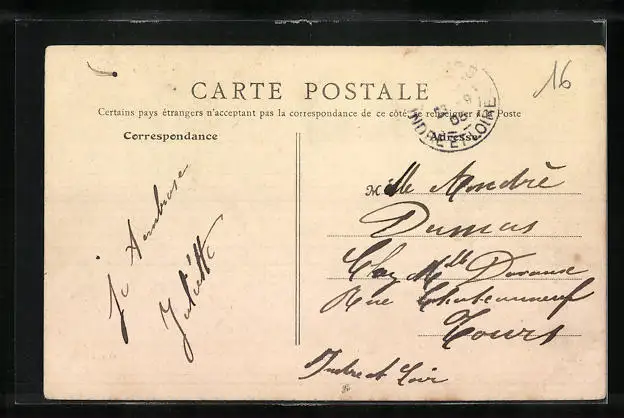 16
CARTE POSTALE
Certains pays étrangers n'acceptant pas la correspondance de ce côté, se renseigner à la Poste
Correspondance
Adresse
INDRE ET LOIRE
Je Ambrose
Juliette
Mlle
Dumas
Chez Mlle
Rue Chateauneuf
Tours
Indre et Loir